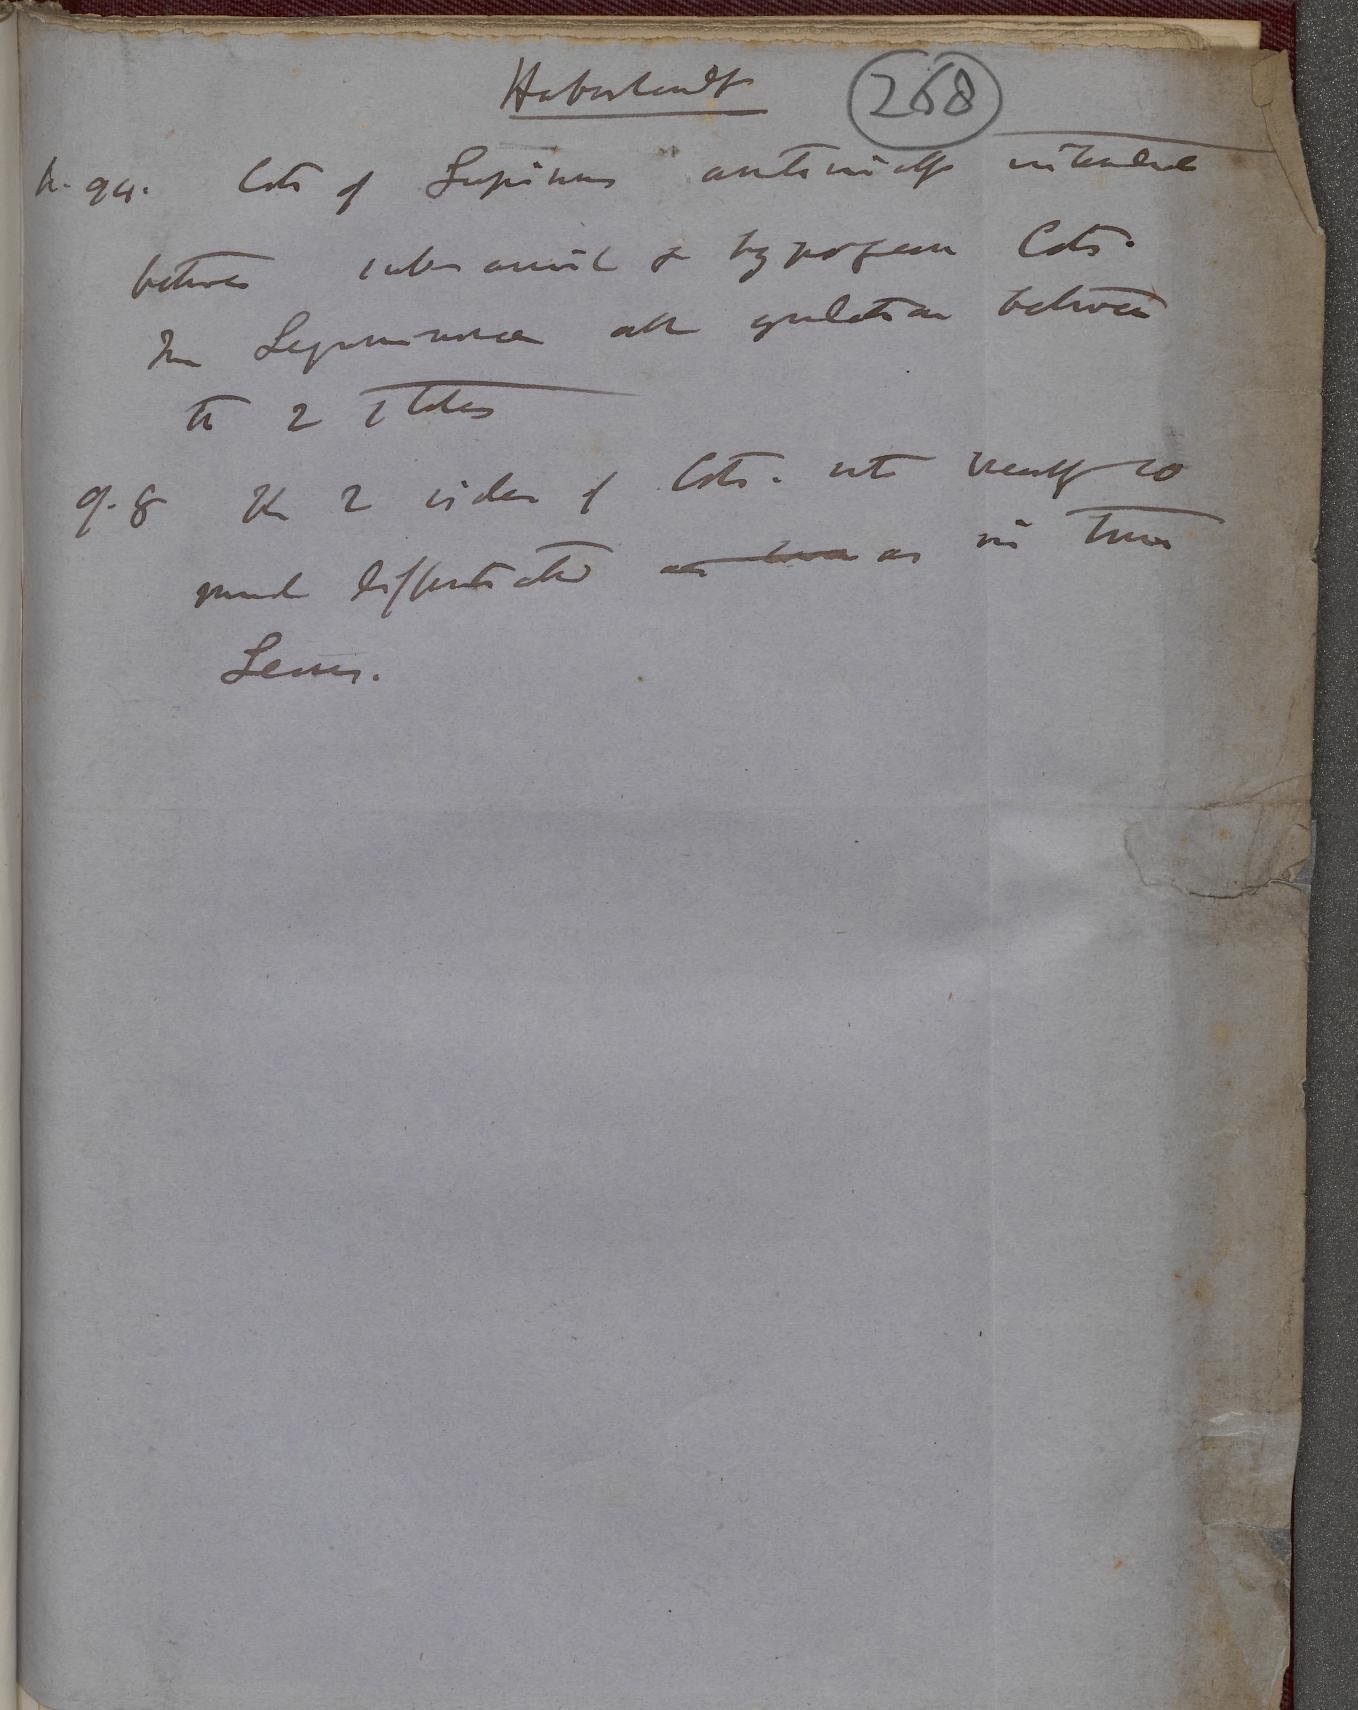 Haberlandt 268
p. 94. Cots of Lupinus anatomically intermediate
between subaerial & hypogean Cots.
In Leguminosae all gradation between
the 2 states
9.8 The 2 sides of Cots. not nearly so
much differentiated as in true
Leaves.